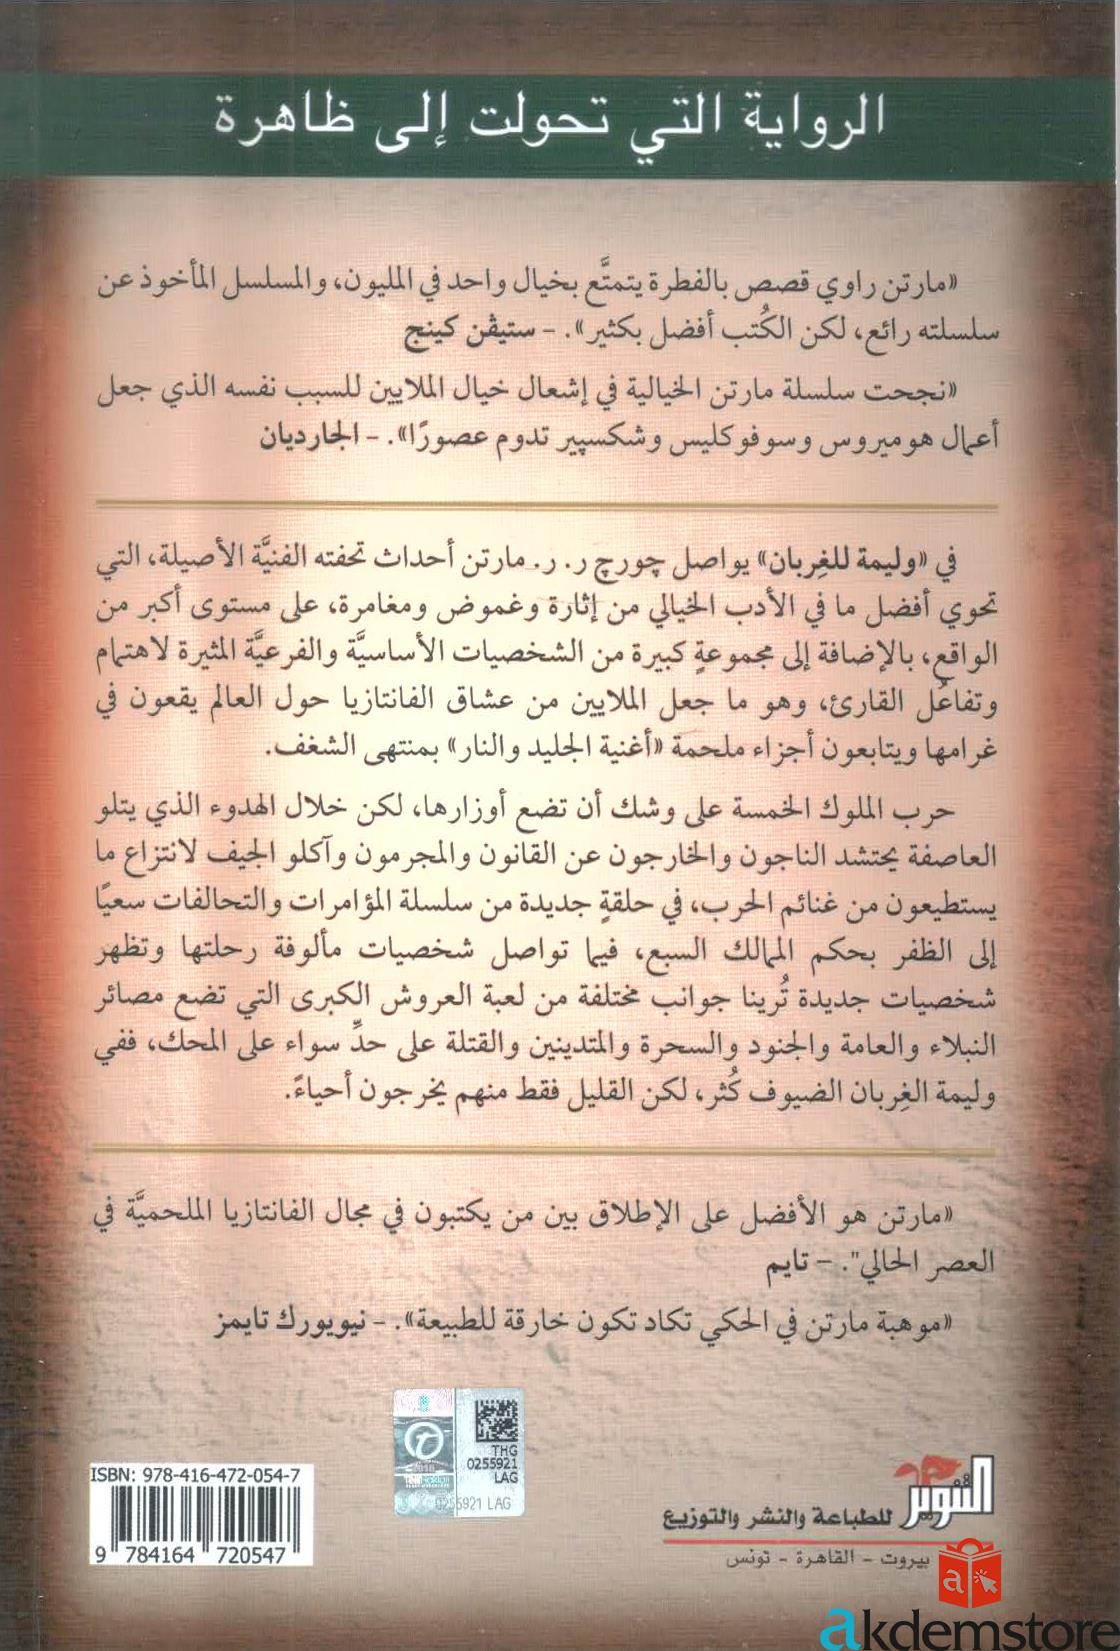 الرواية التي تحولت إلى ظاهرة
«مارتن راوي قصص بالفطرة يتمتَّع بخيال واحد في المليون، والمسلسل المأخوذ عن
سلسلته رائع، لكن الكُتب أفضل بكثير». - ستيڤن كينج
«نجحت سلسلة مارتن الخيالية في إشعال خيال الملايين للسبب نفسه الذي جعل
أعمال هوميروس وسوفوكليس وشكسپير تدوم عصورًا». - الجارديان
في «وليمة للغِربان» يواصل چورچ ر. ر. مارتن أحداث تحفته الفنيَّة الأصيلة، التي
تحوي أفضل ما في الأدب الخيالي من إثارة وغموض ومغامرة، على مستوى أكبر من
الواقع، بالإضافة إلى مجموعةٍ كبيرة من الشخصيات الأساسيَّة والفرعيَّة المثيرة لاهتمام
وتفاعُل القارئ، وهو ما جعل الملايين من عشاق الفانتازيا حول العالم يقعون في
غرامها ويتابعون أجزاء ملحمة «أغنية الجليد والنار» بمنتهى الشغف.
حرب الملوك الخمسة على وشك أن تضع أوزارها، لكن خلال الهدوء الذي يتلو
العاصفة يحتشد الناجون والخارجون عن القانون والمجرمون وآكلو الجيف لانتزاع ما
يستطيعون من غنائم الحرب، في حلقةٍ جديدة من سلسلة المؤامرات والتحالفات سعيًا
إلى الظفر بحكم الممالك السبع، فيما تواصل شخصيات مألوفة رحلتها وتظهر
شخصيات جديدة تُرينا جوانب مختلفة من لعبة العروش الكبرى التي تضع مصائر
النبلاء والعامة والجنود والسحرة والمتدينين والقتلة على حدٍّ سواء على المحك، ففي
وليمة الغِربان الضيوف كُثر، لكن القليل فقط منهم يخرجون أحياءً.
«مارتن هو الأفضل على الإطلاق بين من يكتبون في مجال الفانتازيا الملحميَّة في
العصر الحالي". - تايم
«موهبة مارتن في الحكي تكاد تكون خارقة للطبيعة». - نيويورك تايمز
THG
0255921
LAG
0255921 LAG
2018
ISBN: 978-416-472-054-7
9 784164 720547
التنوير للطباعة والنشر والتوزيع
بيروت - القاهرة - تونس
a
akdemstore